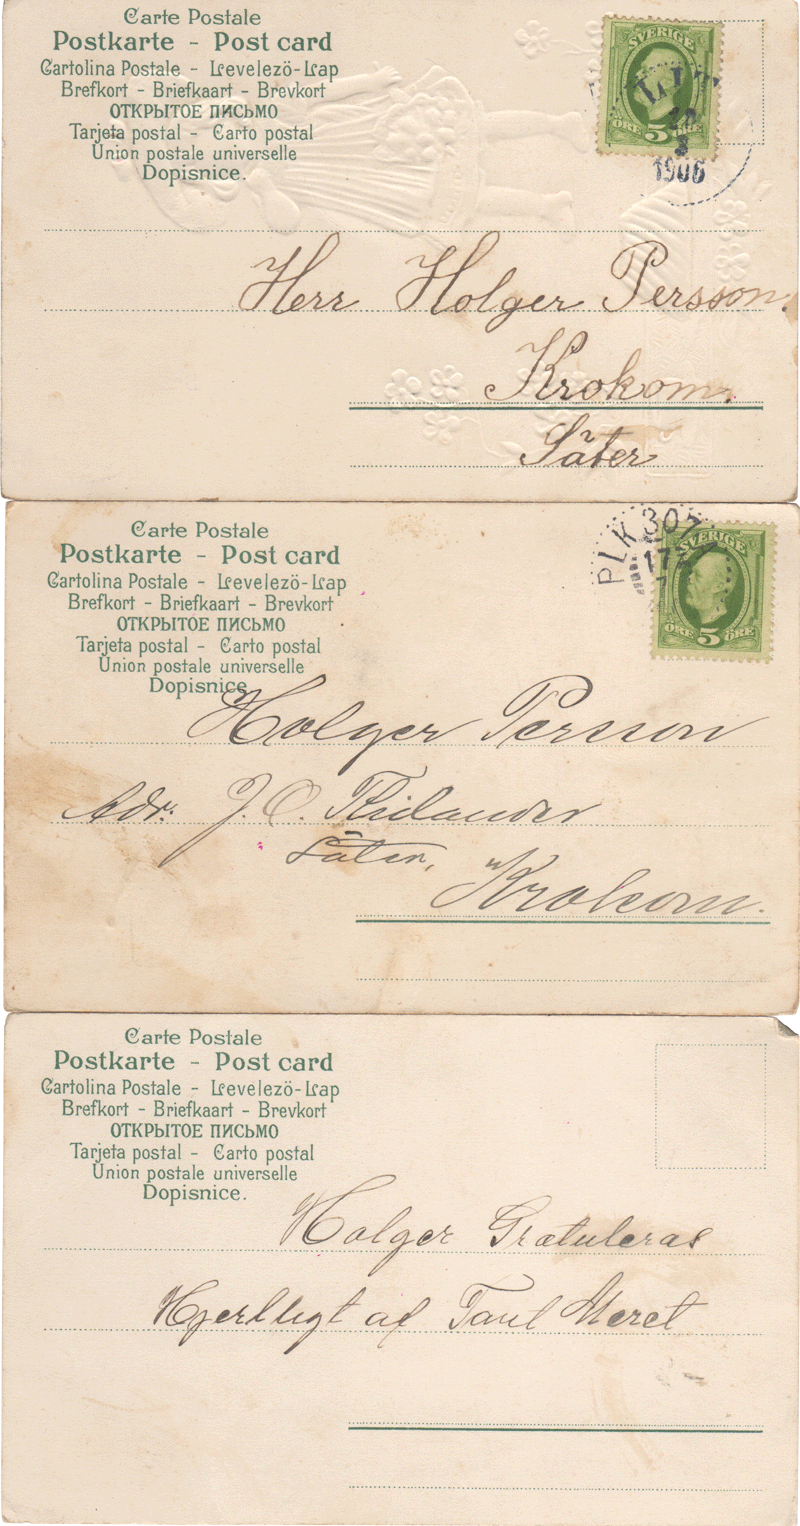 Carte Postale
Postkarte - Post card
Cartolina Postale - Levelezö-Lap
Brefkort - Briefkaart - Brevkort
ОТКРЫТОЕ ПИСЬМО
Tarjeta postal - Carto postal
Union postale universelle
Dopisnice.
SVERIGE
ÖRE 5 ÖRE
LIT
3
1906
Herr Holger Persson.
Krokom.
Säter
Carte Postale
Postkarte - Post card
Cartolina Postale - Levelezö-Lap
Brefkort - Briefkaart - Brevkort
ОТКРЫТОЕ ПИСЬМО
Tarjeta postal - Carto postal
Union postale universelle
Dopisnice
PLK 307
17
SVERIGE
ÖRE 5 ÖRE
Holger Persson
Adr: J. O. Thilander
Säter,
Krokom.
Carte Postale
Postkarte - Post card
Cartolina Postale - Levelezö-Lap
Brefkort - Briefkaart - Brevkort
ОТКРЫТОЕ ПИСЬМО
Tarjeta postal - Carto postal
Union postale universelle
Dopisnice.
Holger Gratuleras
Hjertligt af